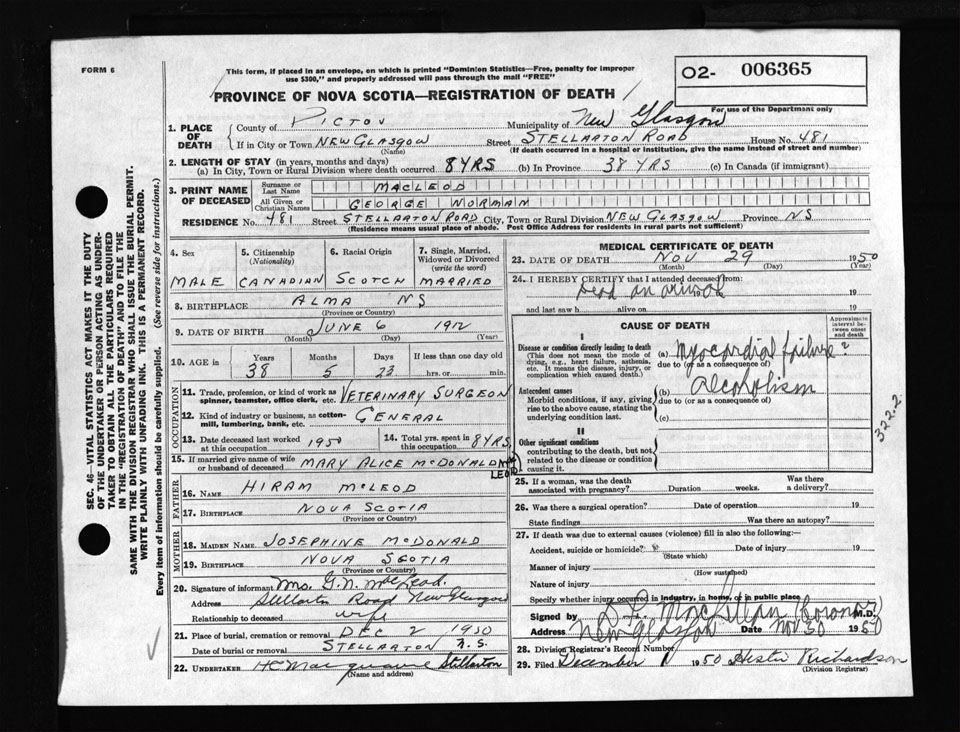 FORM 6
This form, if placed in an envelope, on which is printed "Dominion Statistics—Free, penalty for improper
use $300," and properly addressed will pass through the mail "FREE"
O2- 006365
For use of the Department only
PROVINCE OF NOVA SCOTIA—REGISTRATION OF DEATH
1. PLACE OF DEATH
County of PICTOU Municipality of New Glasgow
If in City or Town NEW GLASGOW Street STELLARTON ROAD House No. 481
(Name) (If death occurred in a hospital or institution, give the name instead of street and number)
2. LENGTH OF STAY (in years, months and days)
(a) In City, Town or Rural Division where death occurred 8 YRS (b) In Province 38 YRS (c) In Canada (if immigrant)
3. PRINT NAME OF DECEASED
Surname or Last Name MACLEOD
All Given or Christian Names GEORGE NORMAN
RESIDENCE No. 481 Street STELLARTON ROAD City, Town or Rural Division NEW GLASGOW Province NS
(Residence means usual place of abode. Post Office Address for residents in rural parts not sufficient)
SEC. 46—VITAL STATISTICS ACT MAKES IT THE DUTY
OF THE UNDERTAKER OR PERSON ACTING AS UNDER-
TAKER TO OBTAIN ALL THE PARTICULARS REQUIRED
IN THE "REGISTRATION OF DEATH" AND TO FILE THE
SAME WITH THE DIVISION REGISTRAR WHO SHALL ISSUE THE BURIAL PERMIT.
WRITE PLAINLY WITH UNFADING INK. THIS IS A PERMANENT RECORD.
Every item of information should be carefully supplied. (See reverse side for instructions.)
4. Sex
MALE
5. Citizenship (Nationality)
CANADIAN
6. Racial Origin
SCOTCH
7. Single, Married, Widowed or Divorced (write the word)
MARRIED
8. BIRTHPLACE ALMA NS
(Province or Country)
9. DATE OF BIRTH JUNE 6 1912
(Month) (Day) (Year)
10. AGE in Years Months Days If less than one day old
38 5 23 hrs. or min.
OCCUPATION
11. Trade, profession, or kind of work as
spinner, teamster, office clerk, etc. VETERINARY SURGEON
12. Kind of industry or business, as cotton-
mill, lumbering, bank, etc. GENERAL
13. Date deceased last worked at this occupation 1950
14. Total yrs. spent in this occupation 8 YRS
15. If married give name of wife
or husband of deceased MARY ALICE McDONALD McLEOD
FATHER
16. NAME HIRAM McLEOD
17. BIRTHPLACE NOVA SCOTIA
(Province or Country)
MOTHER
18. MAIDEN NAME JOSEPHINE McDONALD
19. BIRTHPLACE NOVA SCOTIA
(Province or Country)
20. Signature of informant Mrs. G. N. MacLeod.
Address Stellarton Road New Glasgow
Relationship to deceased wife
21. Place of burial, cremation or removal DEC 2 1950
Date of burial or removal STELLARTON N.S.
22. UNDERTAKER Stellarton
(Name and address)
MEDICAL CERTIFICATE OF DEATH
23. DATE OF DEATH NOV 29 1950
(Month) (Day) (Year)
24. I HEREBY CERTIFY that I attended deceased from:
Dead on arrival 19
and last saw h alive on 19
CAUSE OF DEATH
Approximate interval between onset and death
I
Disease or condition directly leading to death
(This does not mean the mode of
dying, e.g., heart failure, asthenia,
etc. It means the disease, injury, or
complication which caused death.)
(a) Myocardial failure ?
due to (or as a consequence of)
Antecedent causes
Morbid conditions, if any, giving
rise to the above cause, stating the
underlying condition last.
(b) alcoholism
due to (or as a consequence of)
(c)
322.2
II
Other significant conditions
contributing to the death, but not
related to the disease or condition
causing it.
25. If a woman, was the death
associated with pregnancy? Duration weeks. Was there a delivery?
26. Was there a surgical operation? Date of operation 19
State findings Was there an autopsy?
27. If death was due to external causes (violence) fill in also the following:—
Accident, suicide or homicide? Date of injury 19
(State which)
Manner of injury
(How sustained)
Nature of injury
Specify whether injury occurred in industry, in home, or in public place
Signed by (Coroner) M.D.
Address New Glasgow Date Nov 30 1950
28. Division Registrar's Record Number
29. Filed December 1 1950 Hester Richardson
(Division Registrar)